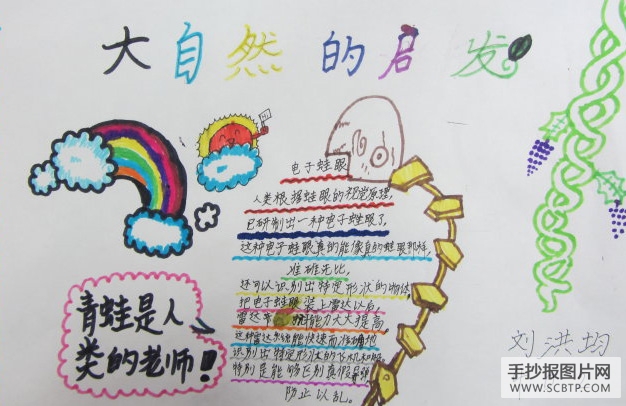 大自然的启发
电子蛙眼
人类根据蛙眼的视觉原理,
已研制出一种电子蛙眼了,
这种电子蛙眼真的能像真的蛙眼那样,
准确无比,
还可以识别出特定形状的物体,
把电子蛙眼装上雷达以后,
雷达 能力大大提高,
这种雷达系统能快速而准确地
识别出特定形状的飞机和
特别是能够区别真假
防止以乱。
青蛙是人
类的老师!
刘洪均
手抄报图片网
WWW.SCBTP.COM